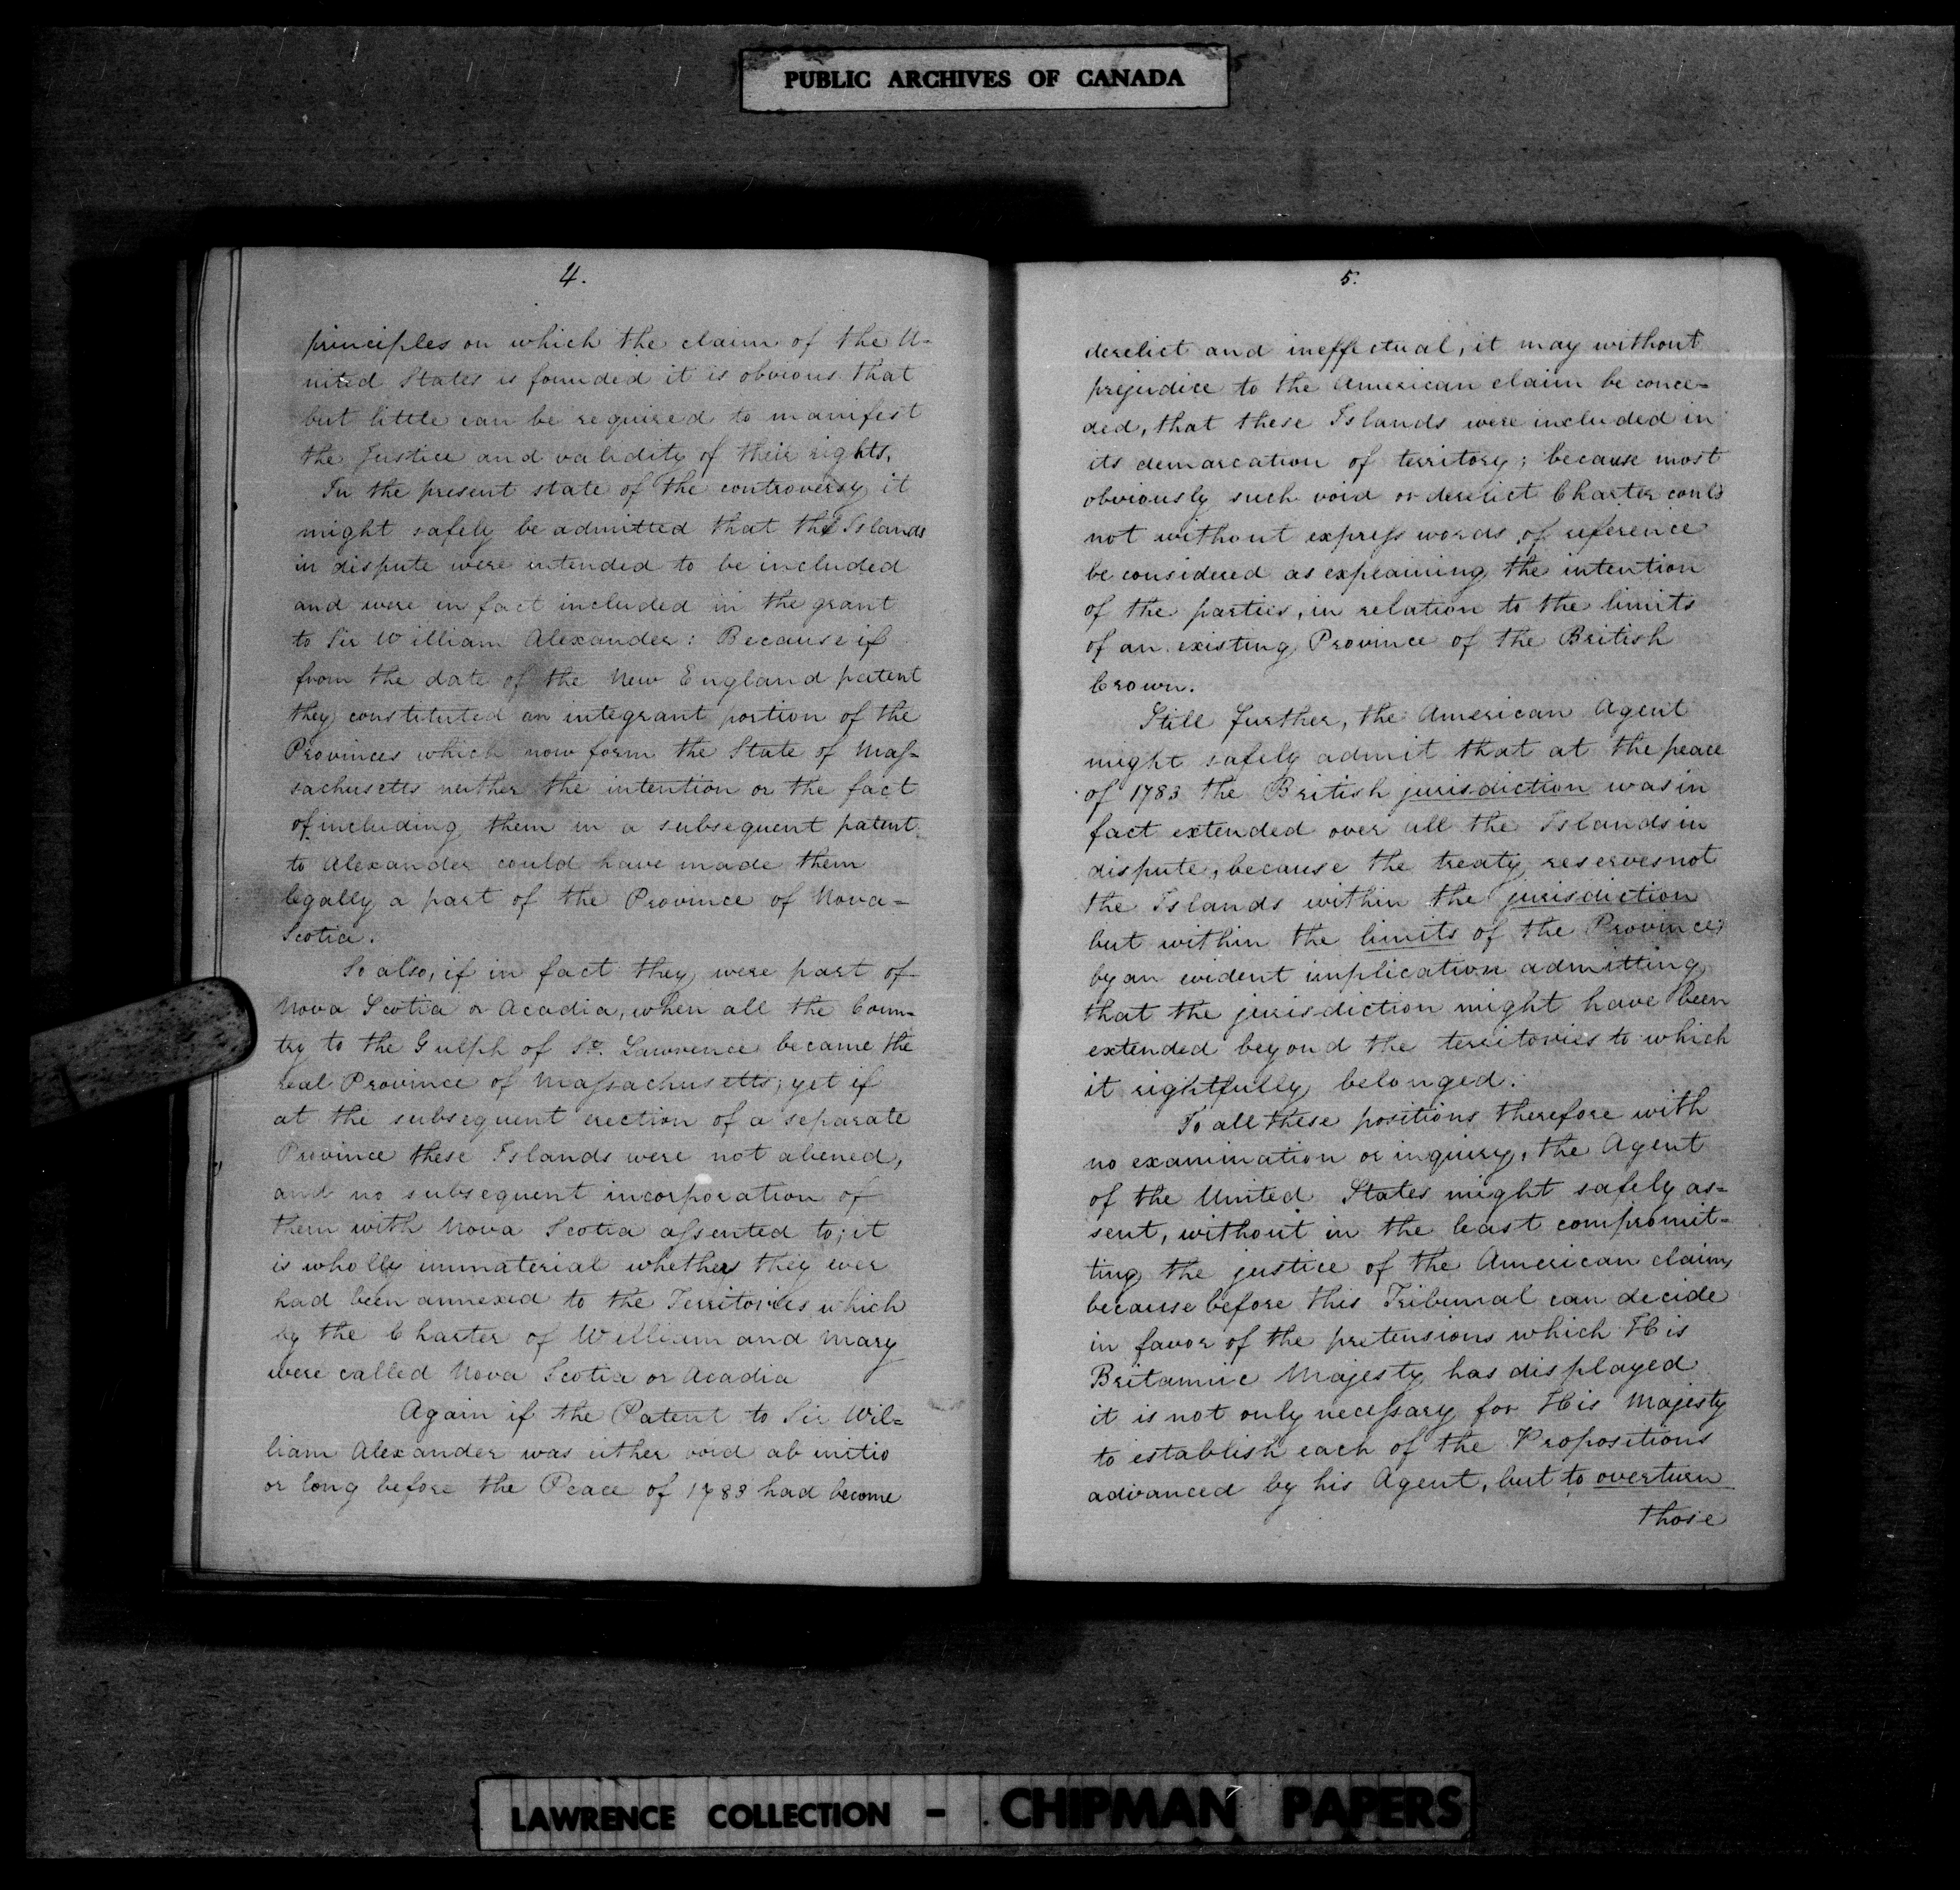 PUBLIC ARCHIVES OF CANADA
4.
principles on which the claim of the U-
nited States is founded it is obvious that
but little can be required to manifest
the Justice and validity of their rights.
In the present state of the controversy it
might safely be admitted that the Islands
in dispute were intended to be included
and were in fact included in the grant
to Sir William Alexander: Because if
from the date of the New England patent
they constituted an integrant portion of the
Provinces which now form the State of Mas-
sachusetts neither the intention or the fact
of including them in a subsequent patent
to Alexander could have made them
legally a part of the Province of Nova-
Scotia.
So also, if in fact they were part of
Nova Scotia or Acadia, when all the Coun-
try to the Gulph of St. Lawrence became the
real Province of Massachusetts; yet if
at the subsequent erection of a separate
Province these Islands were not aliened,
and no subsequent incorporation of
them with Nova Scotia assented to; it
is wholly immaterial whether they ever
had been annexed to the Territories which
by the Charter of William and Mary
were called Nova Scotia or Acadia
Again if the Patent to Sir Wil=
liam Alexander was either void ab initio
or long before the Peace of 1783 had become
5.
derelict and ineffectual, it may without
prejudice to the American claim be conce-
ded, that these Islands were included in
its demarcation of territory; because most
obviously such void or derelict Charter could
not without express words of reference
be considered as explaining the intention
of the parties, in relation to the limits
of an existing Province of the British
Crown.
Still further, the American Agent
might safely admit that at the peace
of 1783 the British jurisdiction was in
fact extended over all the Islands in
dispute, because the treaty reserves not
the Islands within the jurisdiction
but within the limits of the Province;
by an evident implication admitting
that the jurisdiction might have been
extended beyond the territories to which
it rightfully belonged.
To all these positions therefore with
no examination or inquiry, the Agent
of the United States might safely as=
sent, without in the least compromit=
ting the justice of the American claim,
because before this Tribunal can decide
in favor of the pretensions which His
Britannic Majesty has displayed
it is not only necessary for His Majesty
to establish each of the Propositions
advanced by his Agent, but to overturn
those
LAWRENCE COLLECTION - CHIPMAN PAPERS